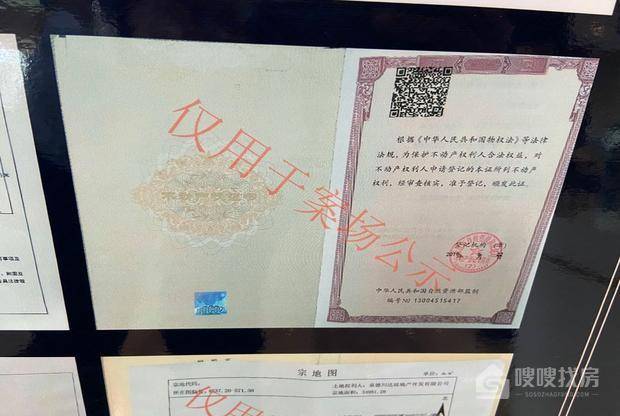 仅用于案场公示
根据《中华人民共和国物权法》等法律
法规，为保护不动产权利人合法权益，对
不动产权利人申请登记的本证所列不动产
权利，经审查核实，准予登记，颁发此证。
登记机构（章）
中华人民共和国自然资源部监制
编号NO 13004515417
宗地图
单位：
宗地代码：
土地权利人：
宗地面积：
仅用于
嗖嗖找房
WWW.SOSOZHAOFANG.COM